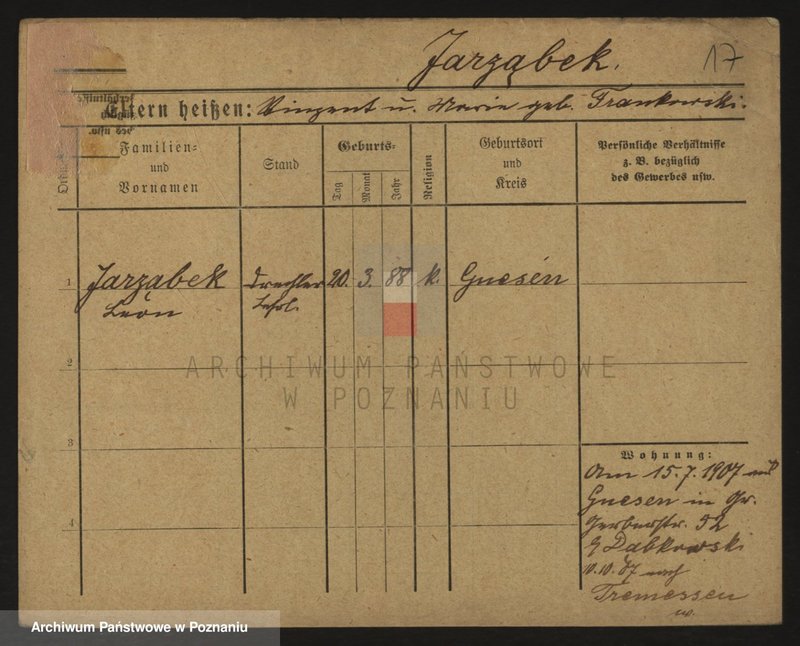 Jarząbek.
17
Eltern heißen: Vinzent u. Marie geb. Frankowski.
Familien= und Vornamen
Stand
Geburts-
Tag
Monat
Jahr
Religion
Geburtsort und Kreis
Persönliche Verhältnisse
z. B. bezüglich
des Gewerbes usw.
1
Jarząbek Drechsler 20. 3. 88 k. Gnesen
Leon Lehrl.
2
ARCHIWUM PAŃSTWOWE
W POZNANIU
3
Wohnung:
Am 15.7.1907 aus
Gnesen in Gr.
Gerberstr. 52
Dabkowski
4
10.10.07 nach
Tremessen
Archiwum Państwowe w Poznaniu